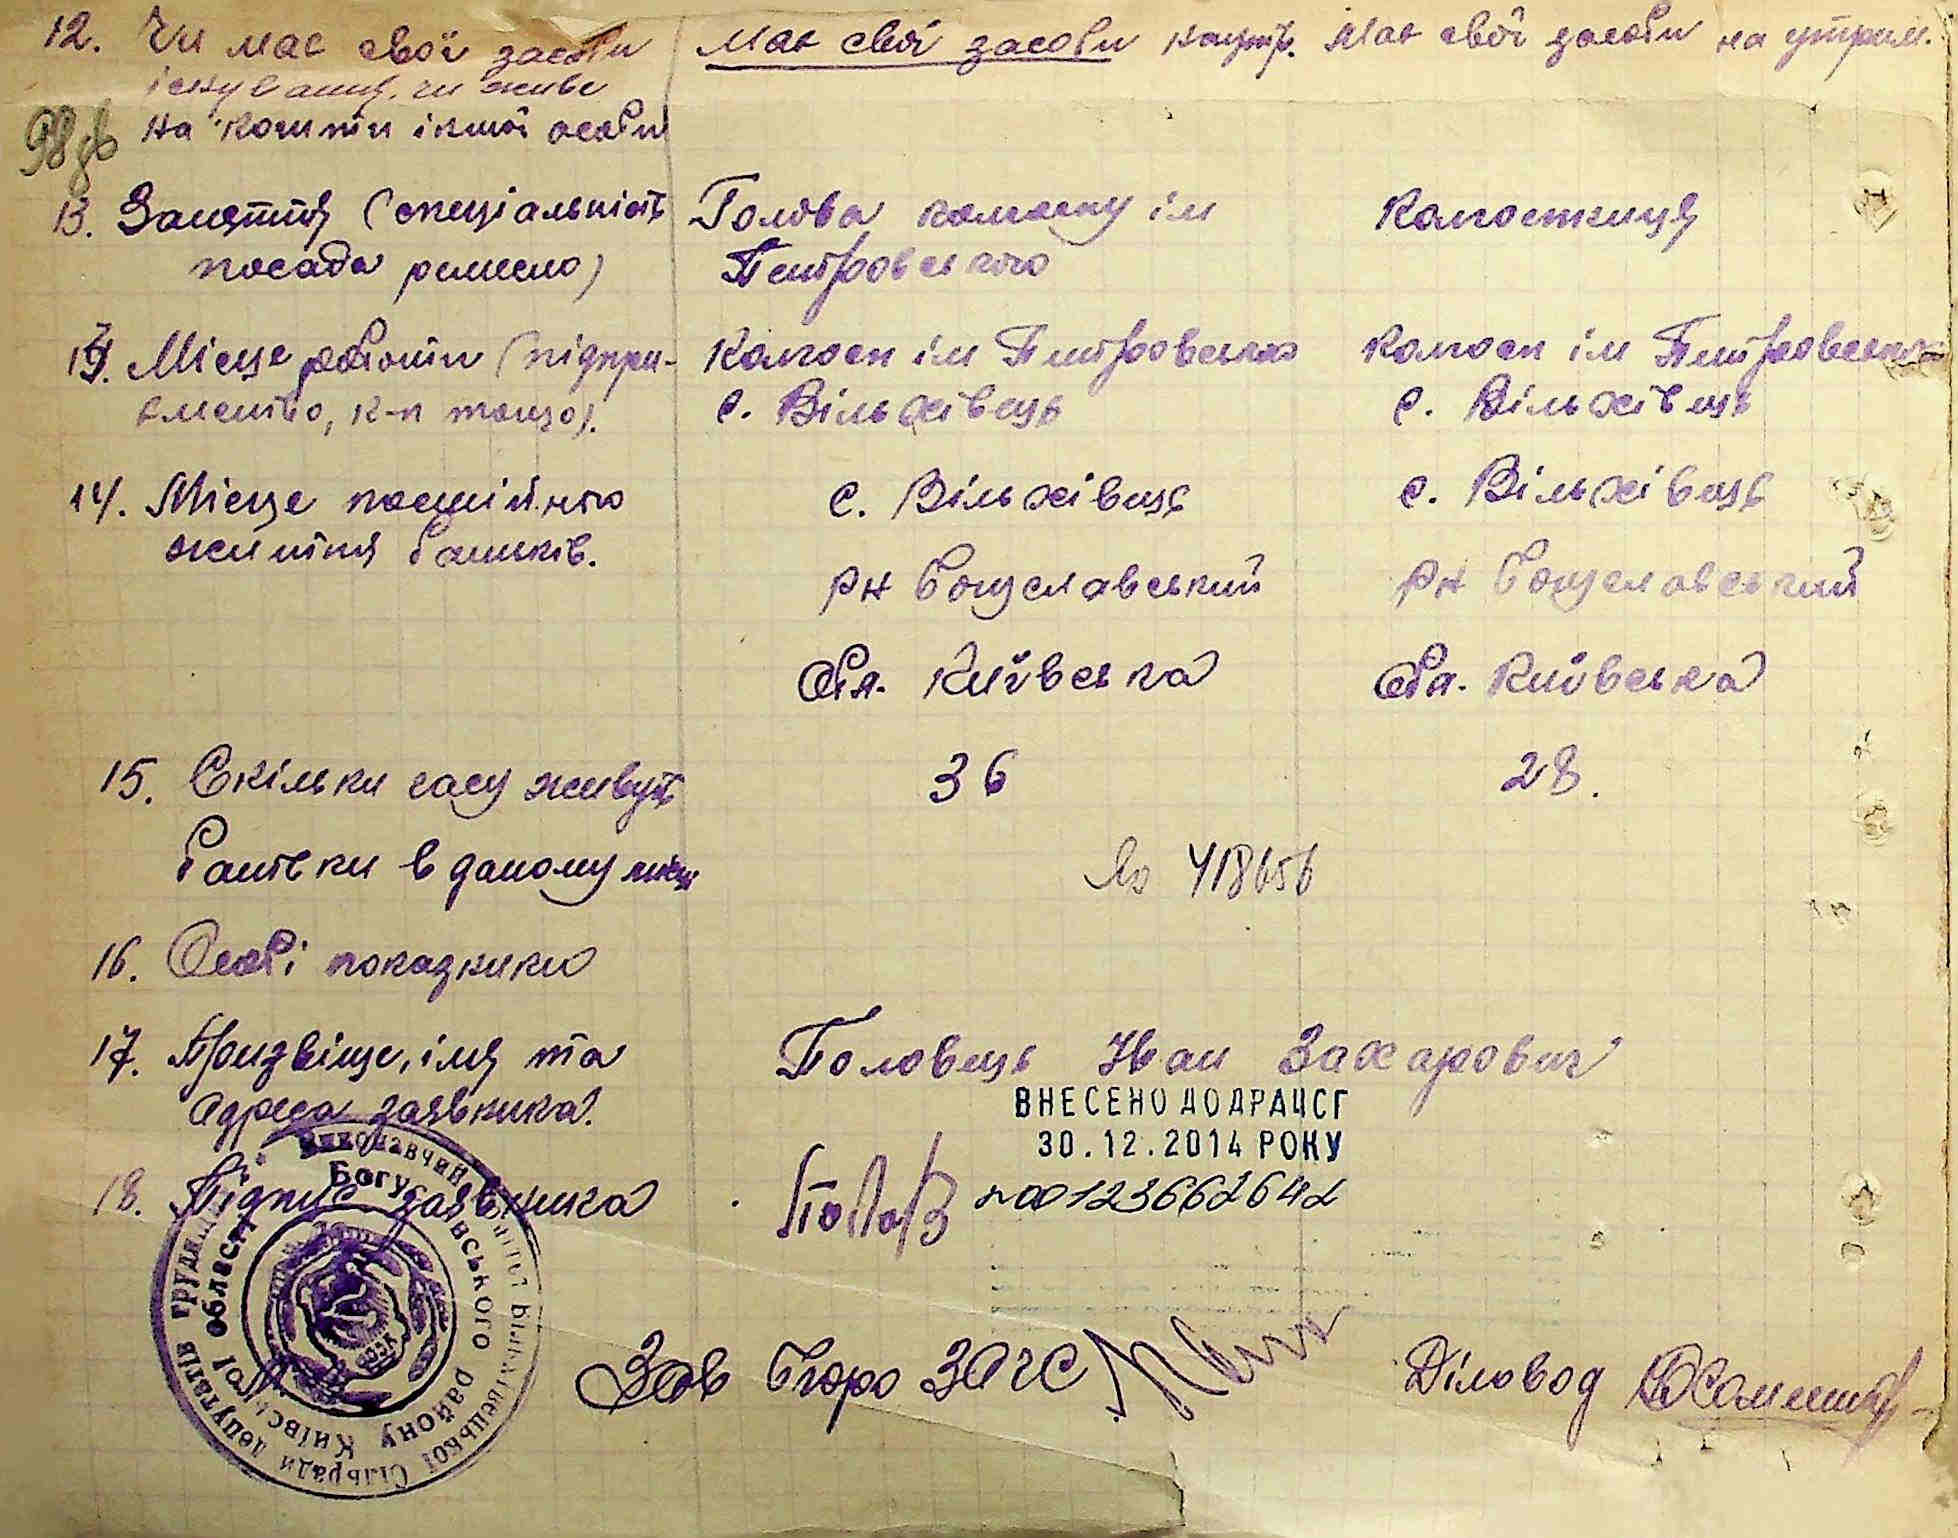 12. Чи має свої засоби має свої засоби Має свої засоби на утрим.
існування, чи живе
на кошти іншої особи
98 зв
13. Заняття (спеціальність Голова колгоспу ім Колгоспниця
посада ремесло) Петровського
13. Місце роботи (підпри- Колгосп ім Петровського Колгосп ім Петровського
ємство, к-п тощо). с. Вільхівець с. Вільхівець
14. Місце постійного с. Вільхівець с. Вільхівець
життя батьків. рн Богуславський рн Богуславський
Обл. Київська Обл. Київська
15. Скільки часу живуть 36 28.
батьки в даному місці № 418656
16. Особі показники
17. Призвіще, імя та Половець Іван Захарович
адреса заявника.
ВНЕСЕНО ДО ДРАЦСГ
30.12.2014 РОКУ
18. Підпис заявника 00123662642
Зав Бюро ЗАГС Діловод
Виконавчий Вільхівецької сільради депутатів трудящих
Богуславського району Київської області